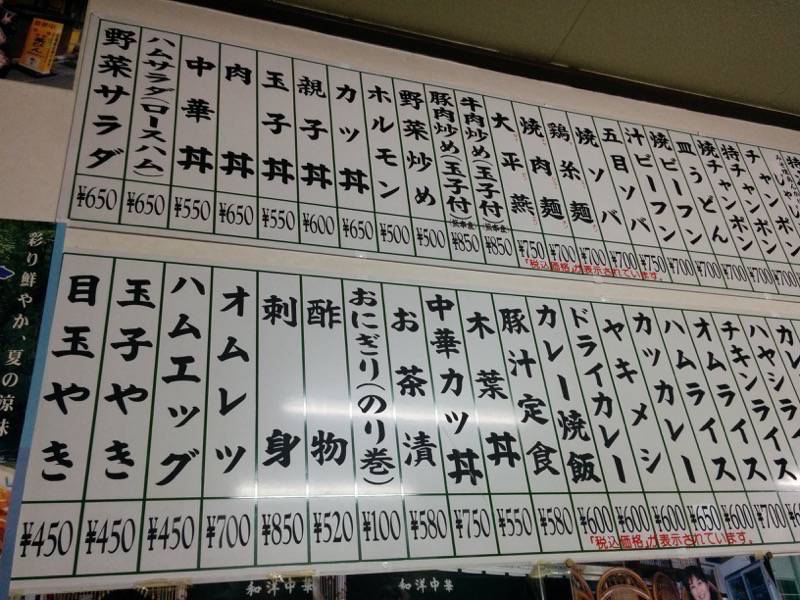 チャンポン
特チャンポン
焼チャンポン
皿うどん
¥700
焼ビーフン
¥700
汁ビーフン
¥700
五目ソバ
¥750
焼ソバ
¥700
鶏糸麺
¥700
焼肉麺
¥700
大平燕
¥750
牛肉炒め(玉子付)
¥850
豚肉炒め(玉子付)
¥850
野菜炒め
¥500
ホルモン
¥500
カツ丼
¥650
親子丼
¥600
玉子丼
¥550
肉丼
¥650
中華丼
¥550
ハムサラダ(ロースハム)
¥650
野菜サラダ
¥650
「税込価格」が表示されています。
ハヤシライス
チキンライス
オムライス
¥700
ハムライス
¥600
カツカレー
¥650
ヤキメシ
¥600
ドライカレー
¥600
カレー焼飯
¥600
豚汁定食
¥580
木葉丼
¥550
中華カツ丼
¥750
お茶漬
¥580
おにぎり(のり巻)
¥100
酢物
¥520
刺身
¥850
オムレツ
¥700
ハムエッグ
¥450
玉子やき
¥450
目玉やき
¥450
「税込価格」が表示されています。
彩り鮮やか、夏の涼味
和洋中華
和洋中華